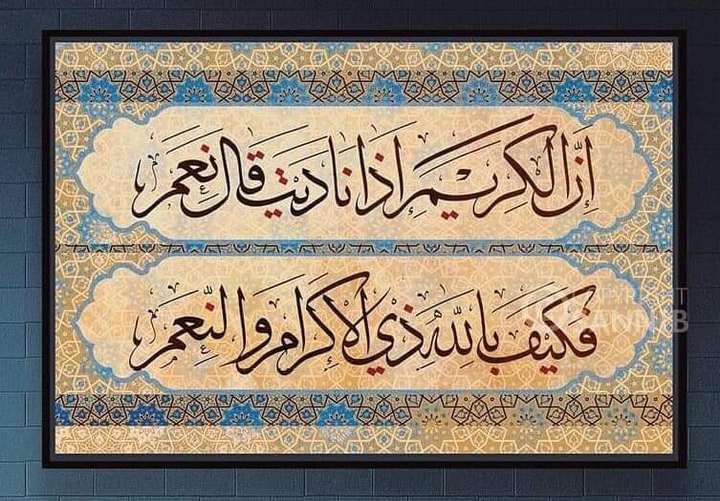 إنّ الكريم إذا ناديت قال نعم
فكيف بالله ذي الإكرام والنّعم